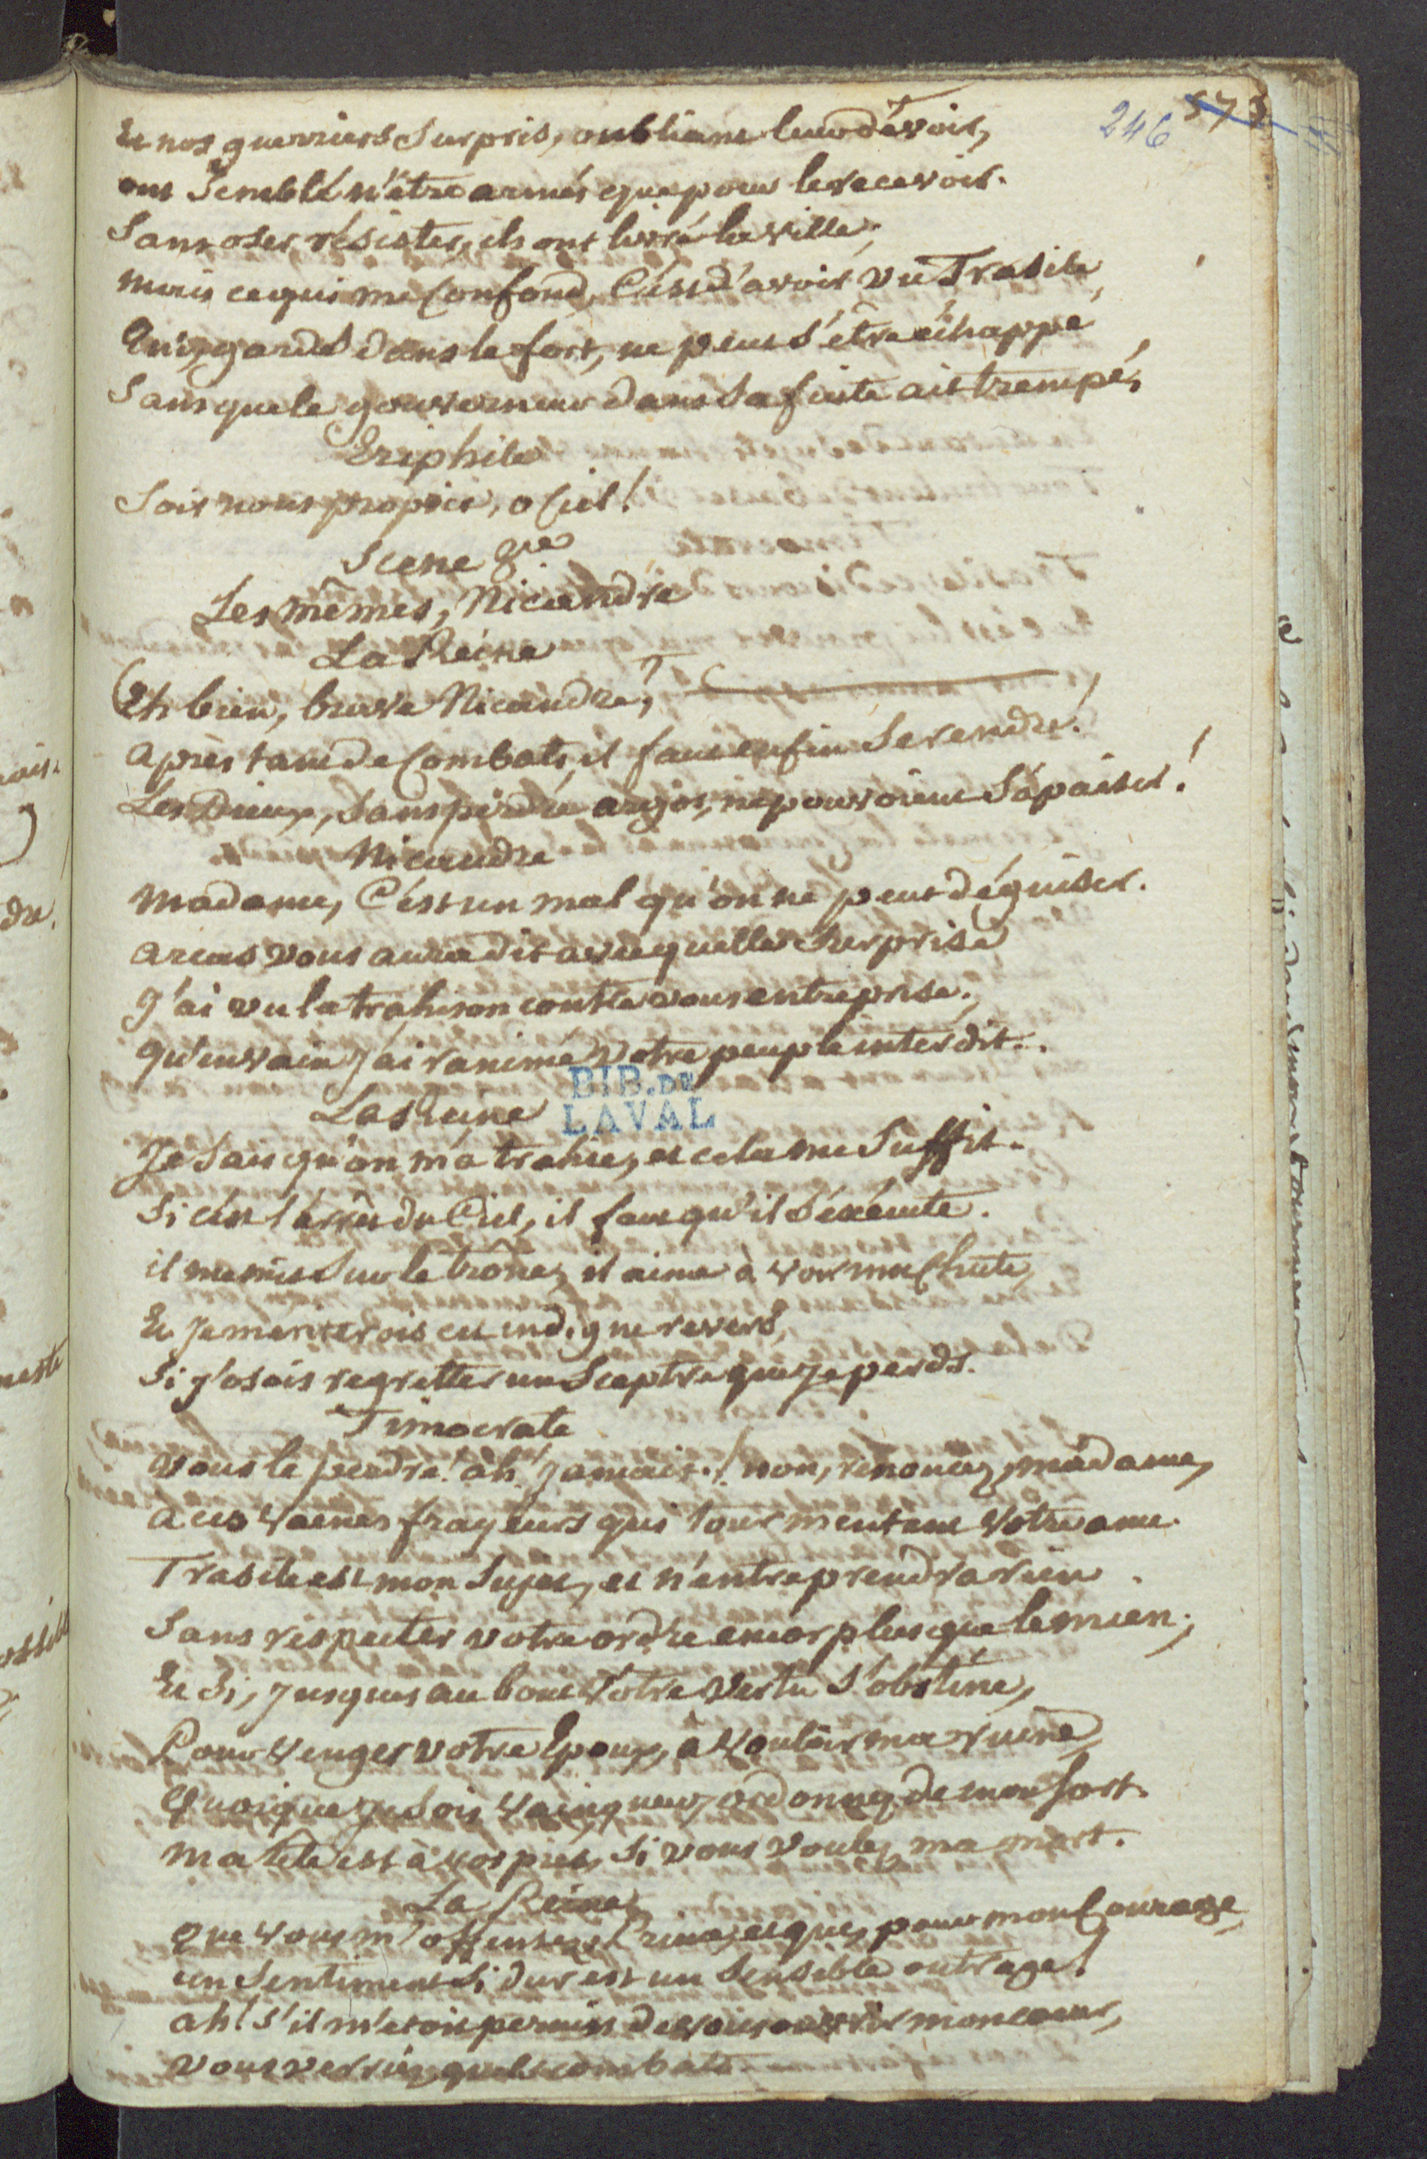 246 573
Et nos guerriers surpris, oubliant leur dévoir,
ont semblé n'être armés que pour le recevoir.
Sans oser résister, ils ont livré la ville,
mais ce qui me confond, C'est d'avoir vu Trasile,
Qui, gardé dans le fort, ne peut s'être échappé
Sans que le gouverneur dans sa fuite ait trempé,
Eriphile
Sois nous propice, o Ciel!
Scene
Les mêmes, Nicandre
La Reine
Eh bien, brave Nicandre,
après tant de Combats, il faut enfin se rendre!
Les Dieux, sans perdre argos, ne pouvoient s'apaiser!
Nicandre
Madame, C'est un mal qu'on ne peut déguiser.
arcas vous aura dit avec quelle surprise
J'ai vu la trahison contre vous entreprise,
qu'en vain j'ai ranimé votre peuple interdit..
La Reine
Je sais qu'on m'a trahie, et cela me suffit.
Si c'est l'arrêt du Ciel, il faut qu'il s'éxécute.
il me mit sur le trône, il aime à voir ma chute,
Et je meriterois cet indigne revers,
Si j'osois regretter un Sceptre que je perds.
Timocrate
Vous le perdre! ah! jamais! non, renoncez, madame,
a ces vaines frayeurs qui tourmentent votre ame.
Trasile est mon sujet, et n'entreprendra rien
Sans respecter votre ordre encor plus que le mien;
Et si, jusques au bout votre vertu s'obstine,
Pour venger votre Epoux, à vouloir ma ruine,
Quoique je sois vainqueur, ordonnez de mon sort.
Ma tête est à vos pieds, si vous voulez ma mort.
La Reine
que vous m'offensez, Prince, et que, pour mon Courage,
un sentiment si dur est un sensible outrage!
ah! s'il m'etoit permis de vous ouvrir mon coeur,
vous verriez quels combats
BIB. DE
LAVAL